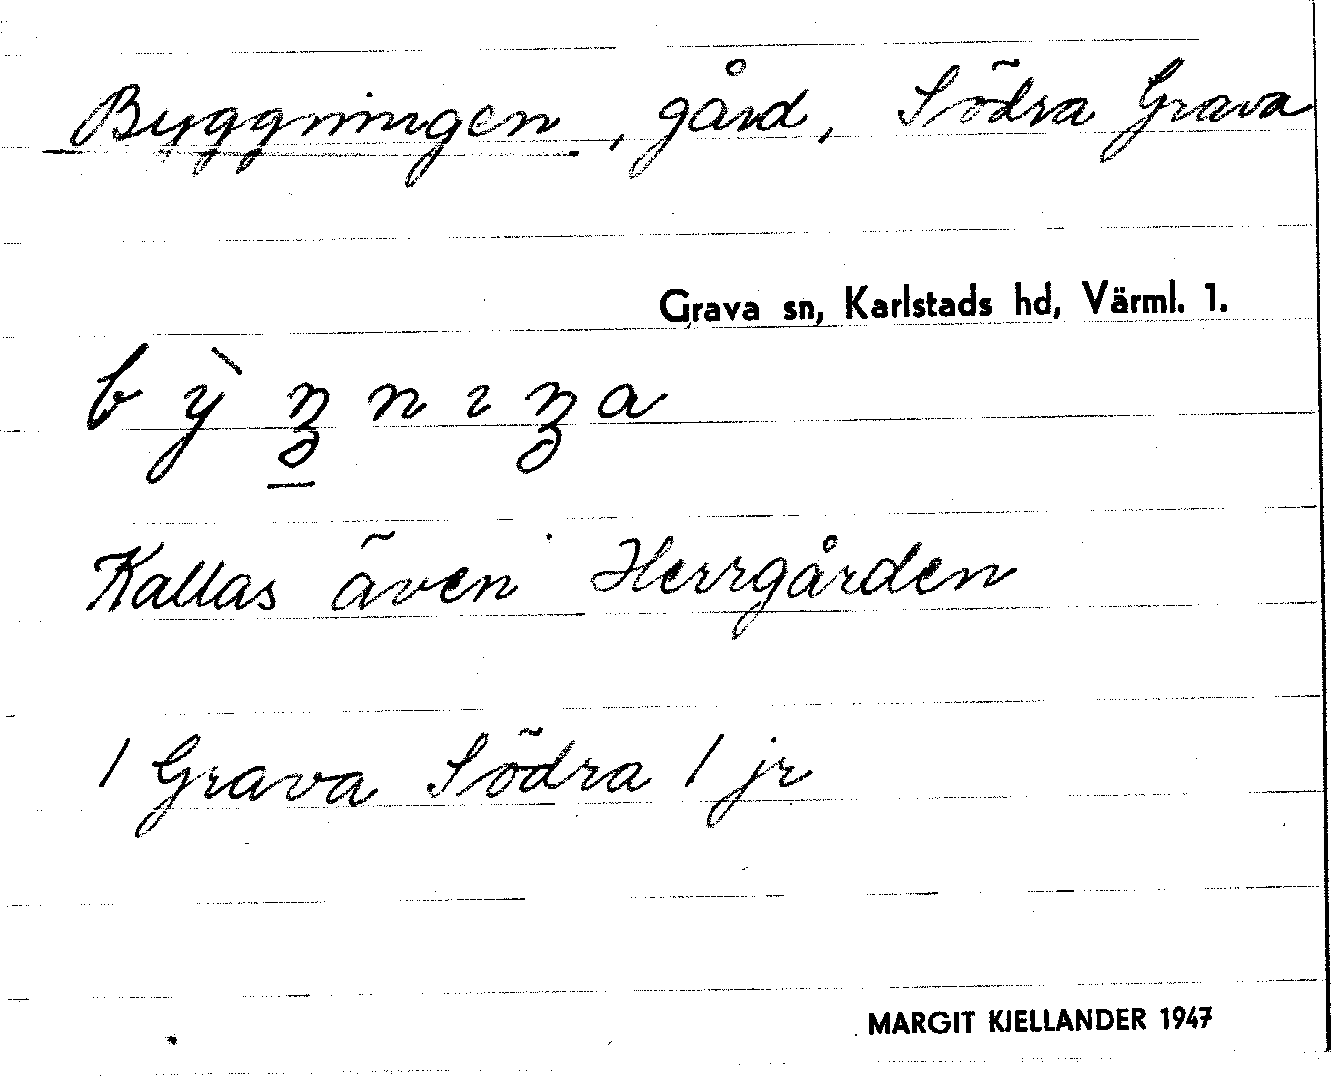 Byggningen, gård, Södra Grava
Grava sn, Karlstads hd, Värml. 1.
bỳŋnıŋa
Kallas även Herrgården
1 Grava Södra 1 jr
MARGIT KJELLANDER 1947